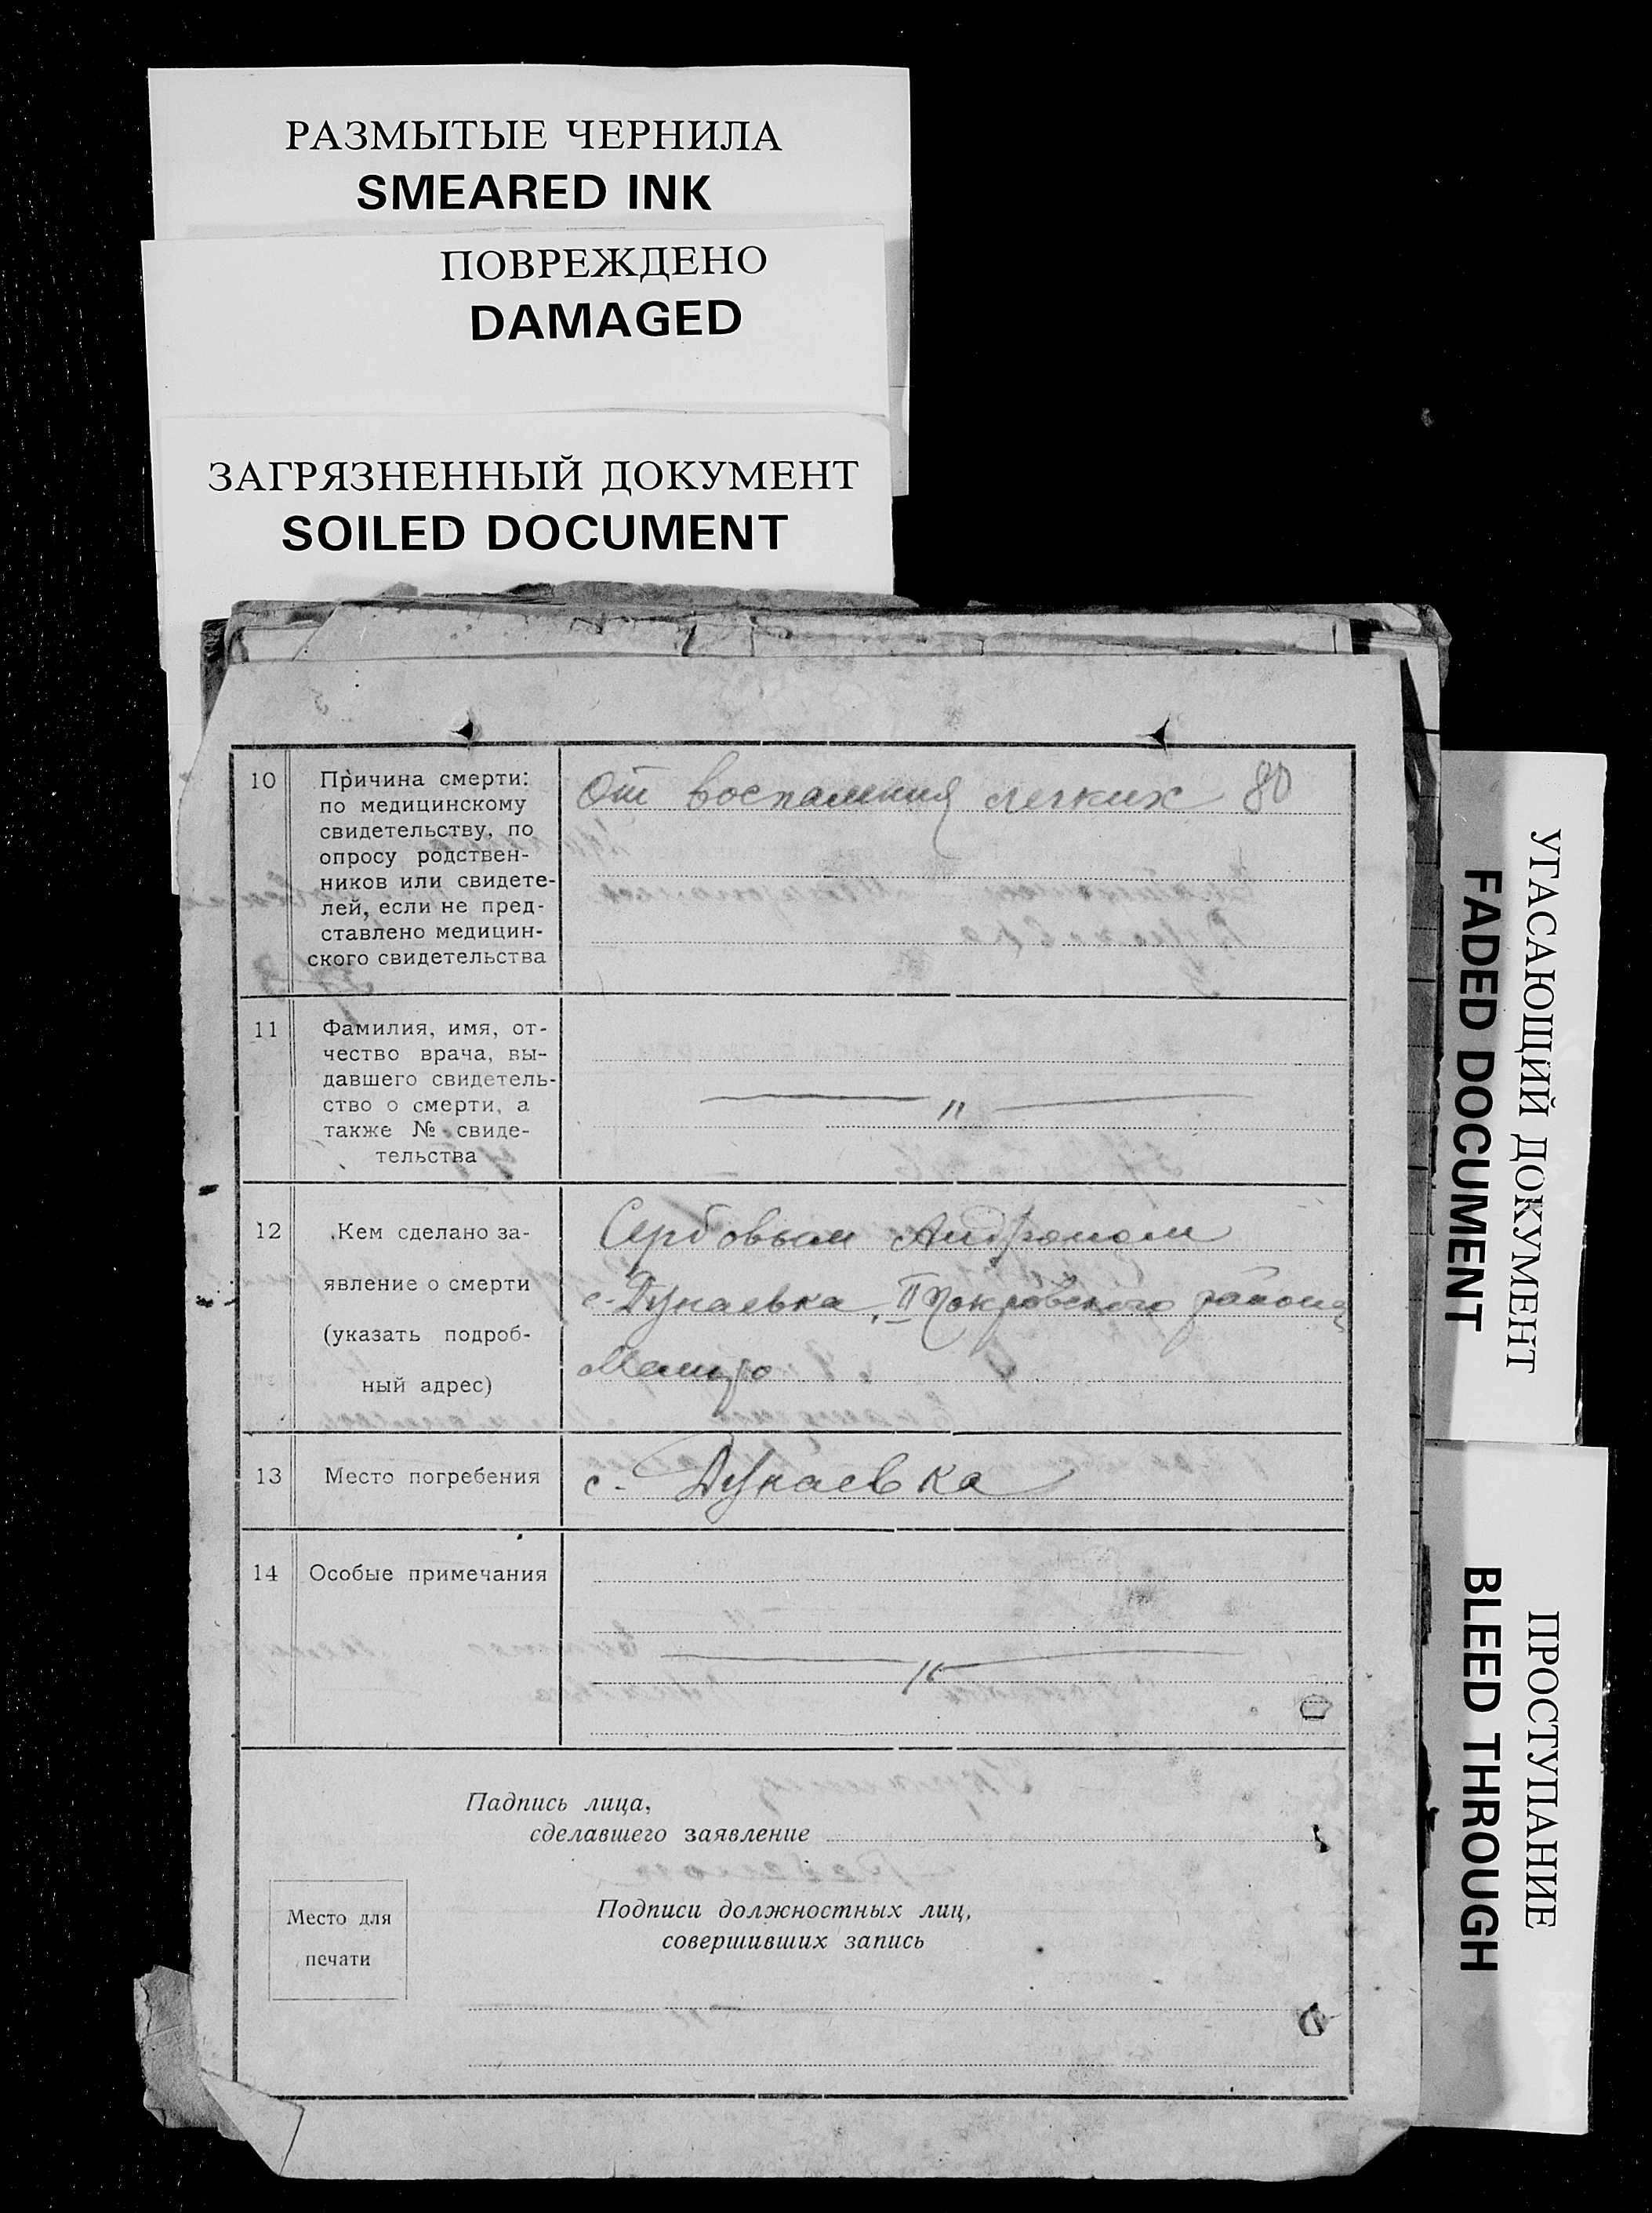 РАЗМЫТЫЕ ЧЕРНИЛА
SMEARED INK
ПОВРЕЖДЕНО
DAMAGED
ЗАГРЯЗНЕННЫЙ ДОКУМЕНТ
SOILED DOCUMENT
10
Причина смерти:
по медицинскому
свидетельству, по
опросу родствен-
ников или свидете-
лей, если не пред-
ставлено медицин-
ского свидетельства
От воспаления легких 80
11
Фамилия, имя, от-
чество врача, вы-
давшего свидетель-
ство о смерти, а
также № свиде-
тельства
— " —
12
Кем сделано за-
явление о смерти
(указать подроб-
ный адрес)
Сербовым
с. Дунаевка, Покровского района
13
Место погребения
с. Дунаевка
14
Особые примечания
— " —
Падпись лица,
сделавшего заявление
Место для
печати
Подписи должностных лиц,
совершивших запись
УГАСАЮЩИЙ ДОКУМЕНТ
FADED DOCUMENT
ПРОСТУПАНИЕ
BLEED THROUGH